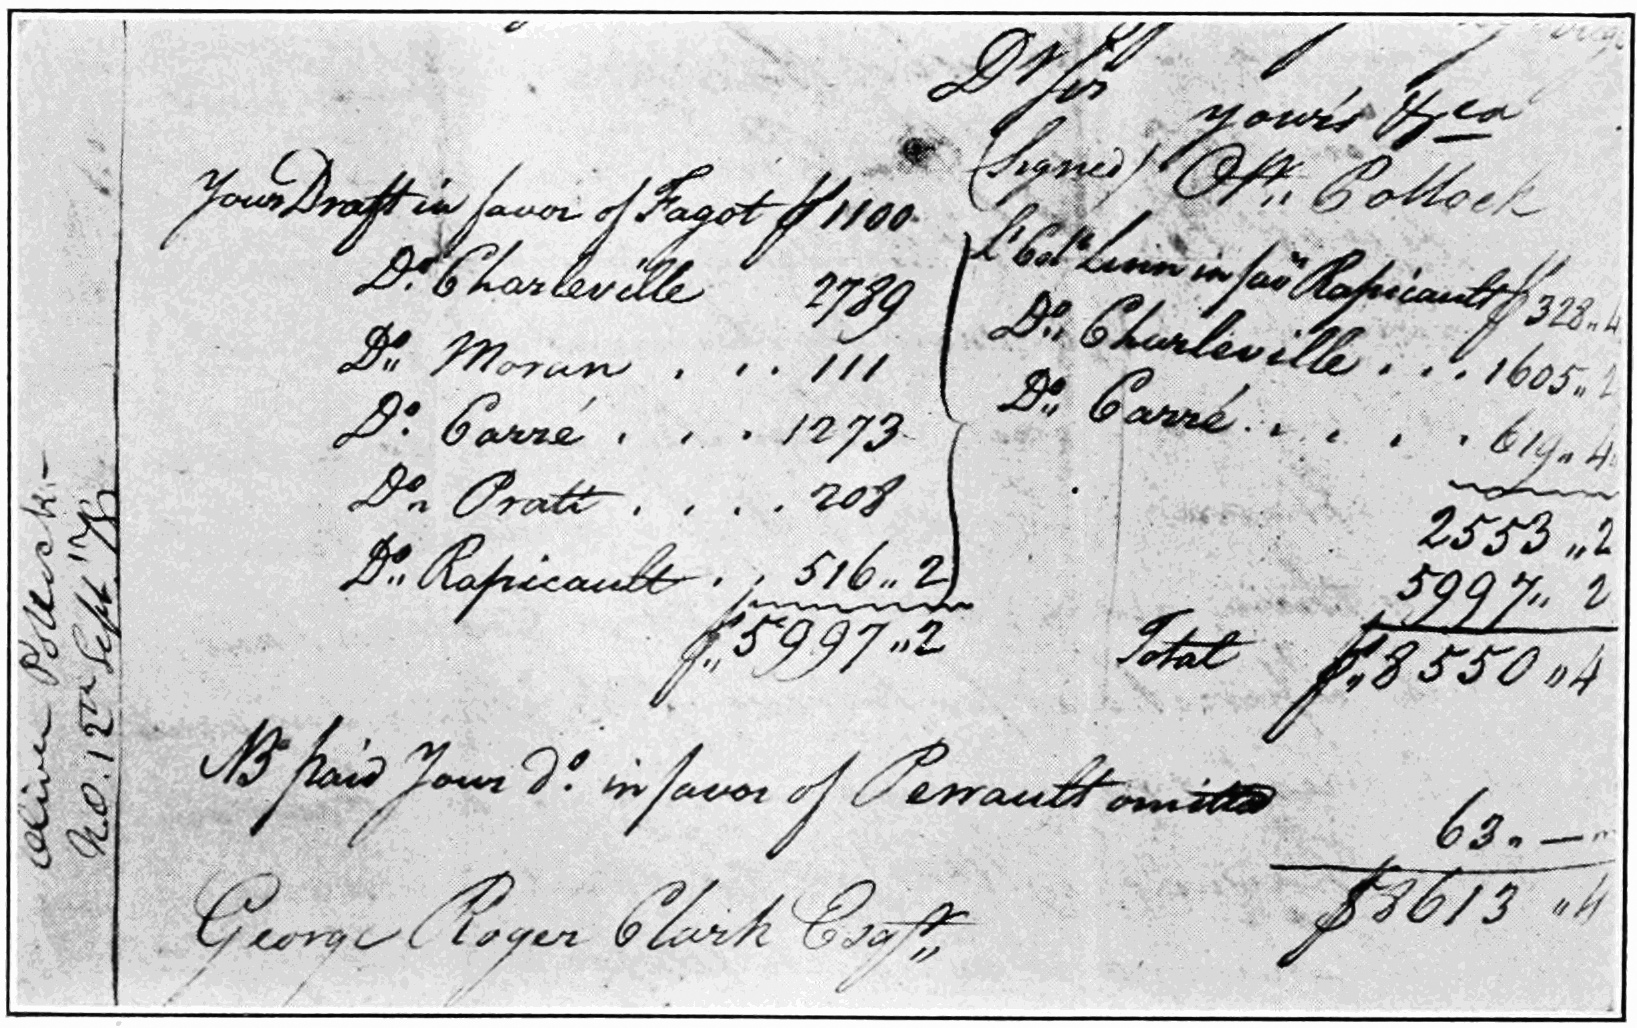 Dr Sir
yours &ca
(Signed) Olr. Pollock
Your Draft in favor of Fagot $ 1100
Do. Charleville 2789
Do. Moran . . . 111
Do. Carré . . . 1273
Do. Pratt . . . . 208
Do. Rapicault . . 516 „ 2
$ „ 5997 „ 2
Lt Coll Linn in favr Rapicault $ 328 „ 4
Do. Charleville . . . 1605 „ 2
Do. Carré . . . . . 619 „ 4
2553 „ 2
5997 „ 2
Total $ „ 8550 „ 4
NB paid Your do. in favor of Perrault omitted
63 „ —
$ 8613 „ 4
George Roger Clark Esqr „
Oliver Pollock —
N.O. 12th Sept.